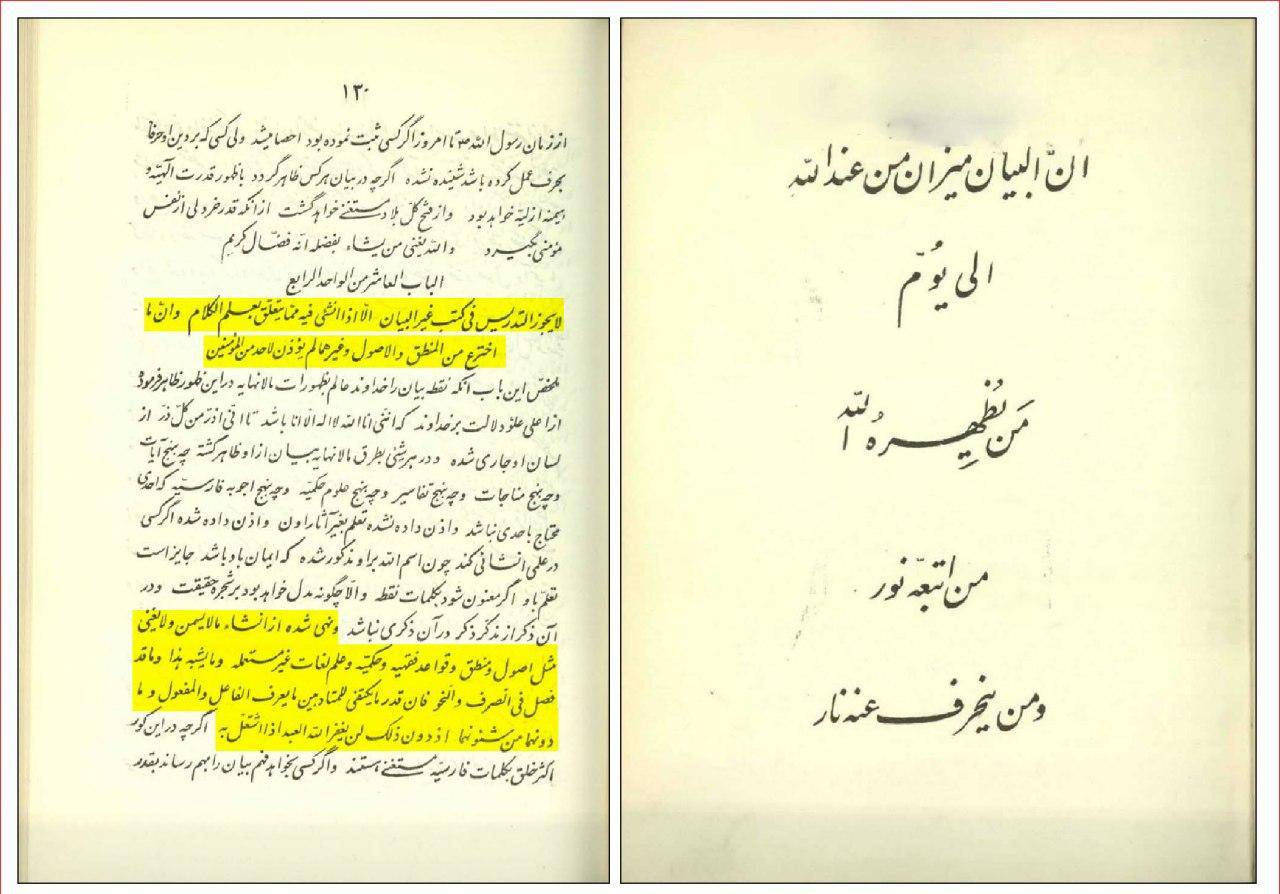 ان البیان میزان من عند الله
الی یوم
من یظهره الله
من اتبعه نور
ومن ینحرف عنه نار
۱۳۰
از زمان رسول الله ص تا امروز اگر کسی ثبت نموده بود احصا میشد ولی کسی که بر دین او حرفا
بحرف عمل کرده باشد شنیده نشده اگرچه در بیان هرکس ظاهر گردد با ظهور قدرت الهیّه و
هیمنه ازلیّه خواهد بود و از فتح کل بلاد مستغنی خواهد گشت از آنکه قدر خردلی از نفس
مؤمنی بگیرد والله یغنی من یشاء بفضله انّه فضّال کریم
الباب العاشر من الواحد الرابع
لایجوز التدریس فی کتب غیر البیان الّا اذا انشئ فیه ممّا یتعلّق بعلم الکلام وانّ ما
اخترع من المنطق والاصول وغیرهما لم یؤذن لاحد من المؤمنین
ملخّص این باب آنکه نقطه بیان را خداوند عالم بظهورات مالانهایه در این ظهور ظاهر فرموده
از اعلی علوّ دلالت بر خداوند که انّنی انا الله لا اله الّا انا باشد تا ادنی اذرّ من کلّ ذر از
لسان او جاری شده و در هر شئی بطرق مالانهایه بیان از او ظاهر گشته چه بنهج آیات
وچه بنهج مناجات وچه بنهج تفاسیر وچه بنهج علوم حکمیّه وچه بنهج اجوبه فارسیّه که احدی
محتاج باحدی نباشد واذن داده نشده تعلّم بغیر آثار اون واذن داده شده اگر کسی
در علمی انشائی کند چون اسم الله براو مذکور شده که ایمان باو باشد جایز است
تعلّم باو اگر معنون شود بکلمات نقطه والّا چگونه مدل خواهد بود بر شجره حقیقت ودر
آن ذکر از مذکّر ذکر در آن ذکری نباشد ونهی شده از انشاء مالایسمن ولایغنی
مثل اصول ومنطق وقواعد فقهیه وحکمیّه وعلم لغات غیر مستعمله ومایشبه هذا وماقد
فصل فی الصرف والنحو فان قدر مایکتفی للمتادبین مایعرف الفاعل والمفعول وما
دونهما من شئونهما اذ دون ذلک لن یغفر الله العبد اذا اشتغل به اگرچه در این کور
اکثر خلق بکلمات فارسیّه مستغنی هستند واگر کسی بخواهد فهم بیان را بهم رساند بقدر